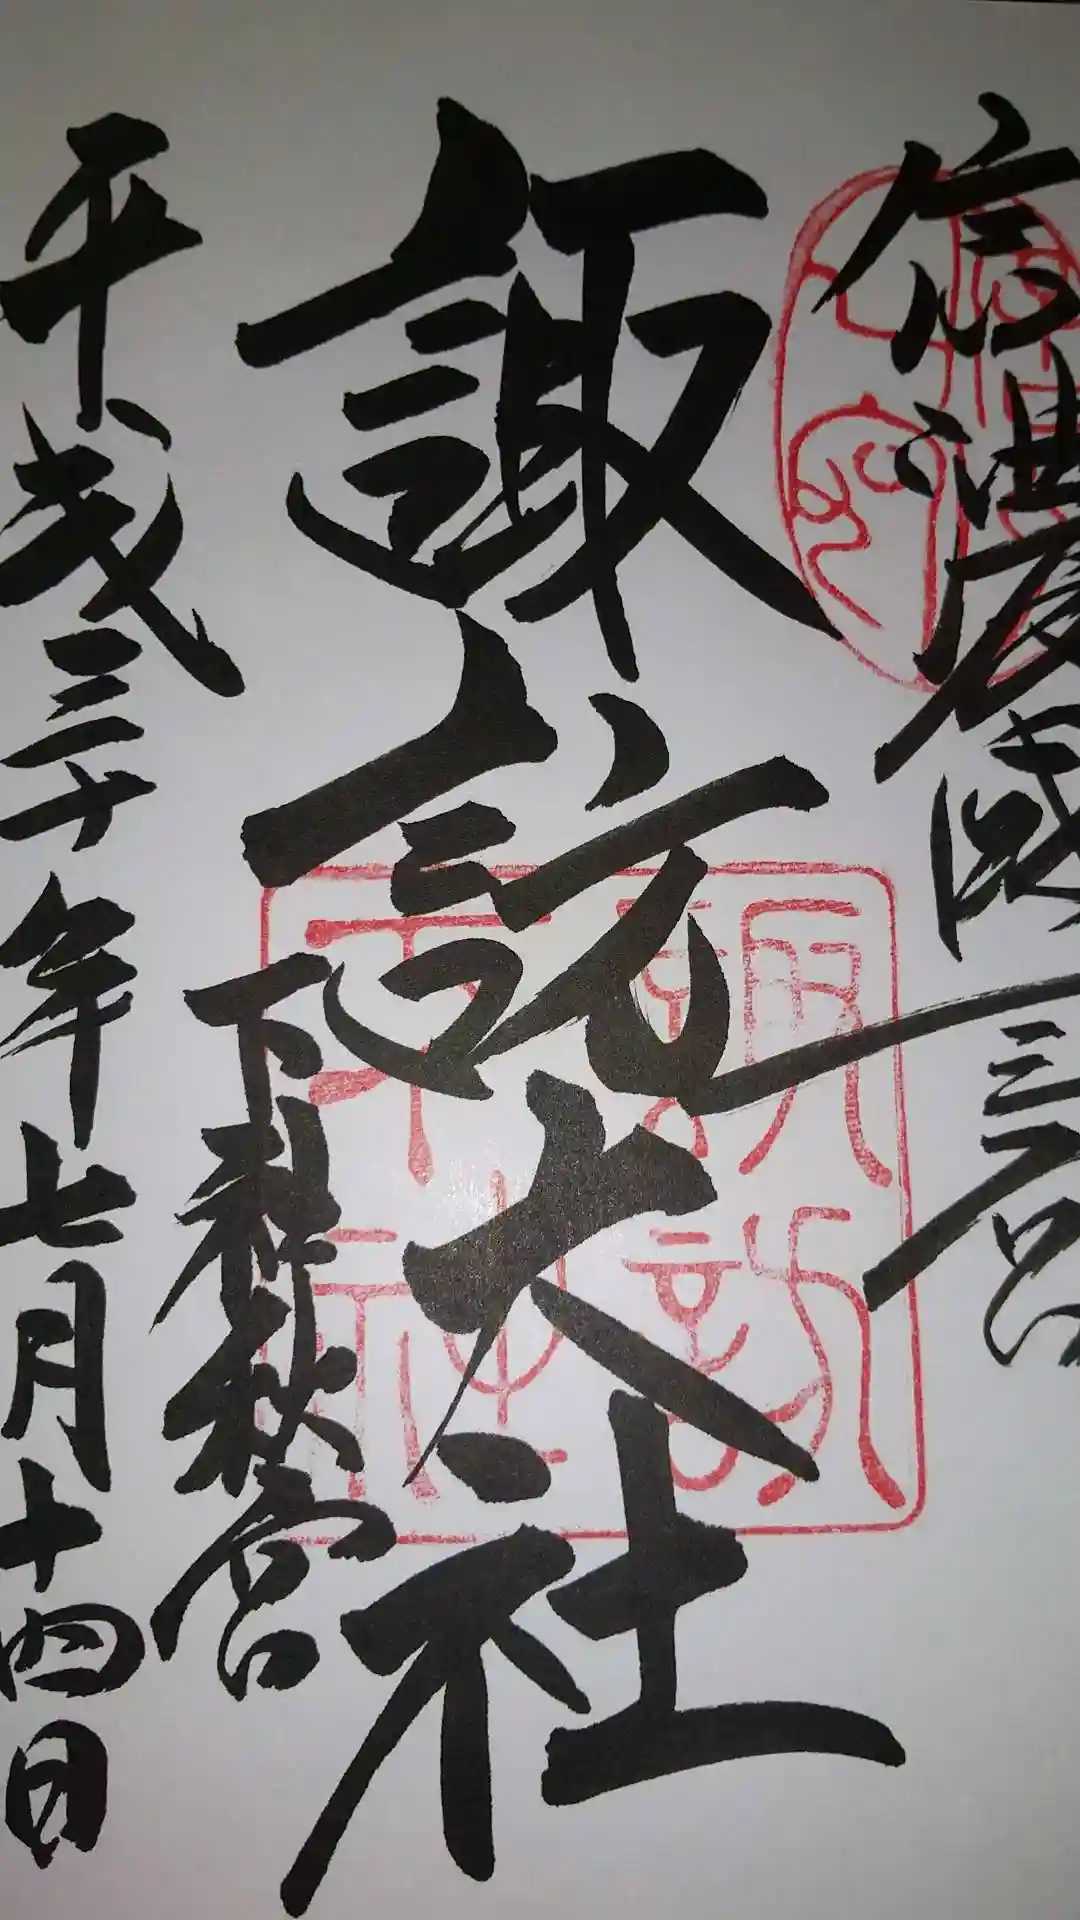 信濃國一之宮
諏訪大社
下社秋宮
平成三十年七月十四日
諏訪大社下社